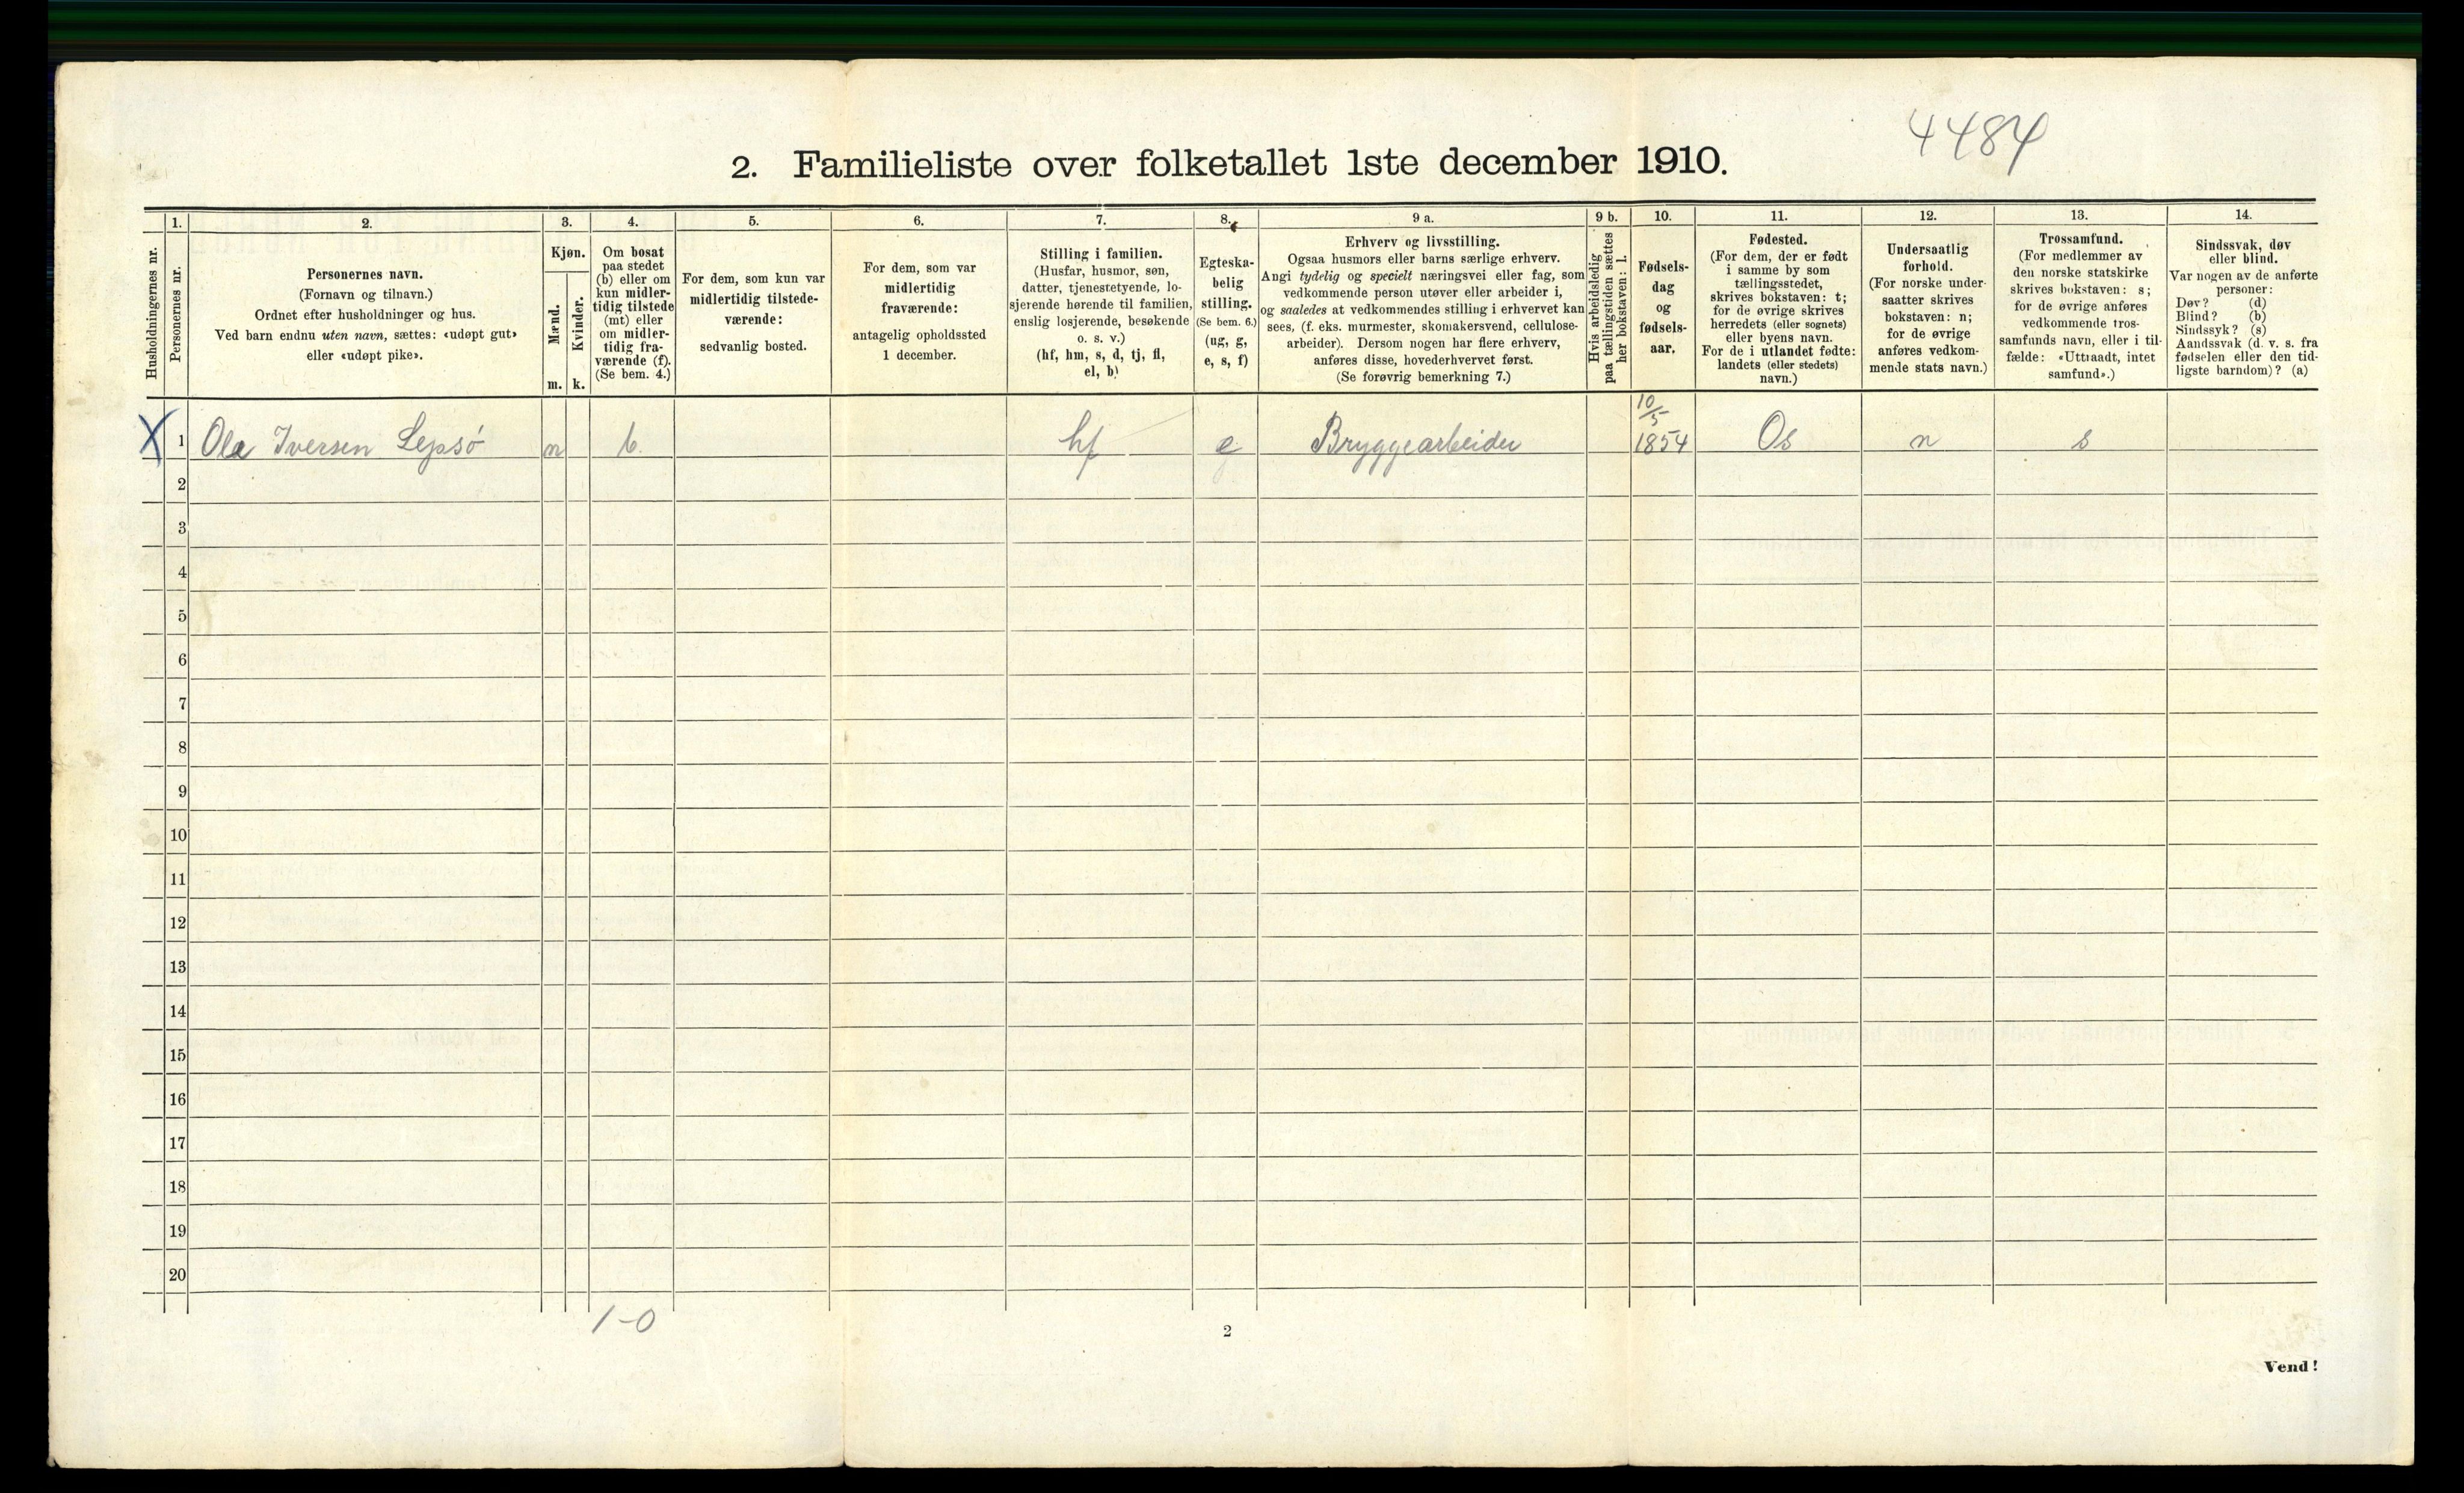 4484
2. Familieliste over folketallet 1ste december 1910.
Husholdningernes nr.
1.
Personernes nr.
2.
Personernes navn.
(Fornavn og tilnavn.)
Ordnet efter husholdninger og hus.
Ved barn endnu uten navn, sættes: «udøpt gut»
eller «udøpt pike».
3.
Kjøn.
Mænd.
Kvinder.
m. k.
4.
Om bosat
paa stedet
(b) eller om
kun midler-
tidig tilstede
(mt) eller
om midler-
tidig fra-
værende (f).
(Se bem. 4.)
5.
For dem, som kun var
midlertidig tilstede-
værende:
sedvanlig bosted.
6.
For dem, som var
midlertidig
fraværende:
antagelig opholdssted
1 december.
7.
Stilling i familien.
(Husfar, husmor, søn,
datter, tjenestetyende, lo-
sjerende hørende til familien,
enslig losjerende, besøkende
o. s. v.)
(hf, hm, s, d, tj, fl,
el, b)
8.
Egteska-
belig
stilling.
(Se bem. 6.)
(ug, g,
e, s, f)
9 a.
Erhverv og livsstilling.
Ogsaa husmors eller barns særlige erhverv.
Angi tydelig og specielt næringsvei eller fag, som
vedkommende person utøver eller arbeider i,
og saaledes at vedkommendes stilling i erhvervet kan
sees, (f. eks. murmester, skomakersvend, cellulose-
arbeider). Dersom nogen har flere erhverv,
anføres disse, hovederhvervet først.
(Se forøvrig bemerkning 7.)
9 b.
Hvis arbeidsledig
paa tællingstiden sættes
her bokstaven: l.
10.
Fødsels-
dag
og
fødsels-
aar.
11.
Fødested.
(For dem, der er født
i samme by som
tællingsstedet,
skrives bokstaven: t;
for de øvrige skrives
herredets (eller sognets)
eller byens navn.
For de i utlandet fødte:
landets (eller stedets)
navn.)
12.
Undersaatlig
forhold.
(For norske under-
saatter skrives
bokstaven: n;
for de øvrige
anføres vedkom-
mende stats navn.)
13.
Trossamfund.
(For medlemmer av
den norske statskirke
skrives bokstaven: s;
for de øvrige anføres
vedkommende tros-
samfunds navn, eller i til-
fælde: «Uttraadt, intet
samfund».)
14.
Sindssvak, døv
eller blind.
Var nogen av de anførte
personer:
Døv? (d)
Blind? (b)
Sindssyk? (s)
Aandssvak (d. v. s. fra
fødselen eller den tid-
ligste barndom)? (a)
X 1 Ole Iversen Lepsö m b hf e Bryggearbeider 10/5 1854 Os n s
2
3
4
5
6
7
8
9
10
11
12
13
14
15
16
17
18
19
20
1-0
2
Vend!